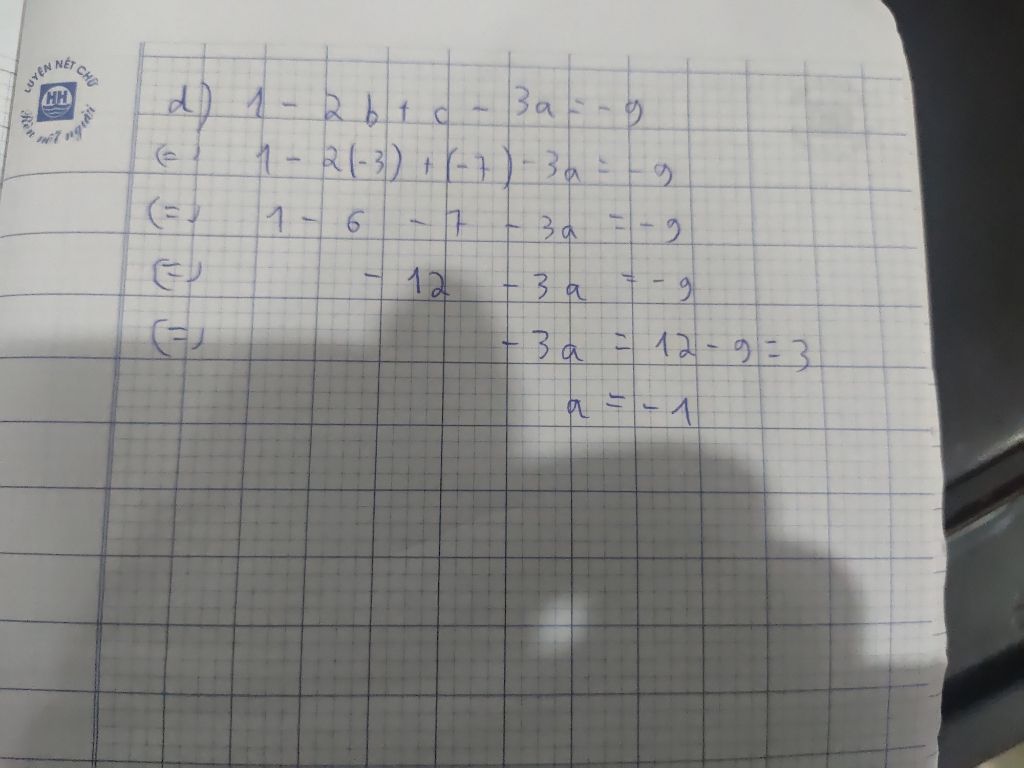 LUYỆN NÉT CHỮ
HH
Rèn nết người
d) 1 - 2b + c - 3a = -9
(=) 1 - 2(-3) + (-7) - 3a = -9
(=) 1 - 6 - 7 - 3a = -9
(=) - 12 - 3a = -9
(=) - 3a = 12 - 9 = 3
a = -1